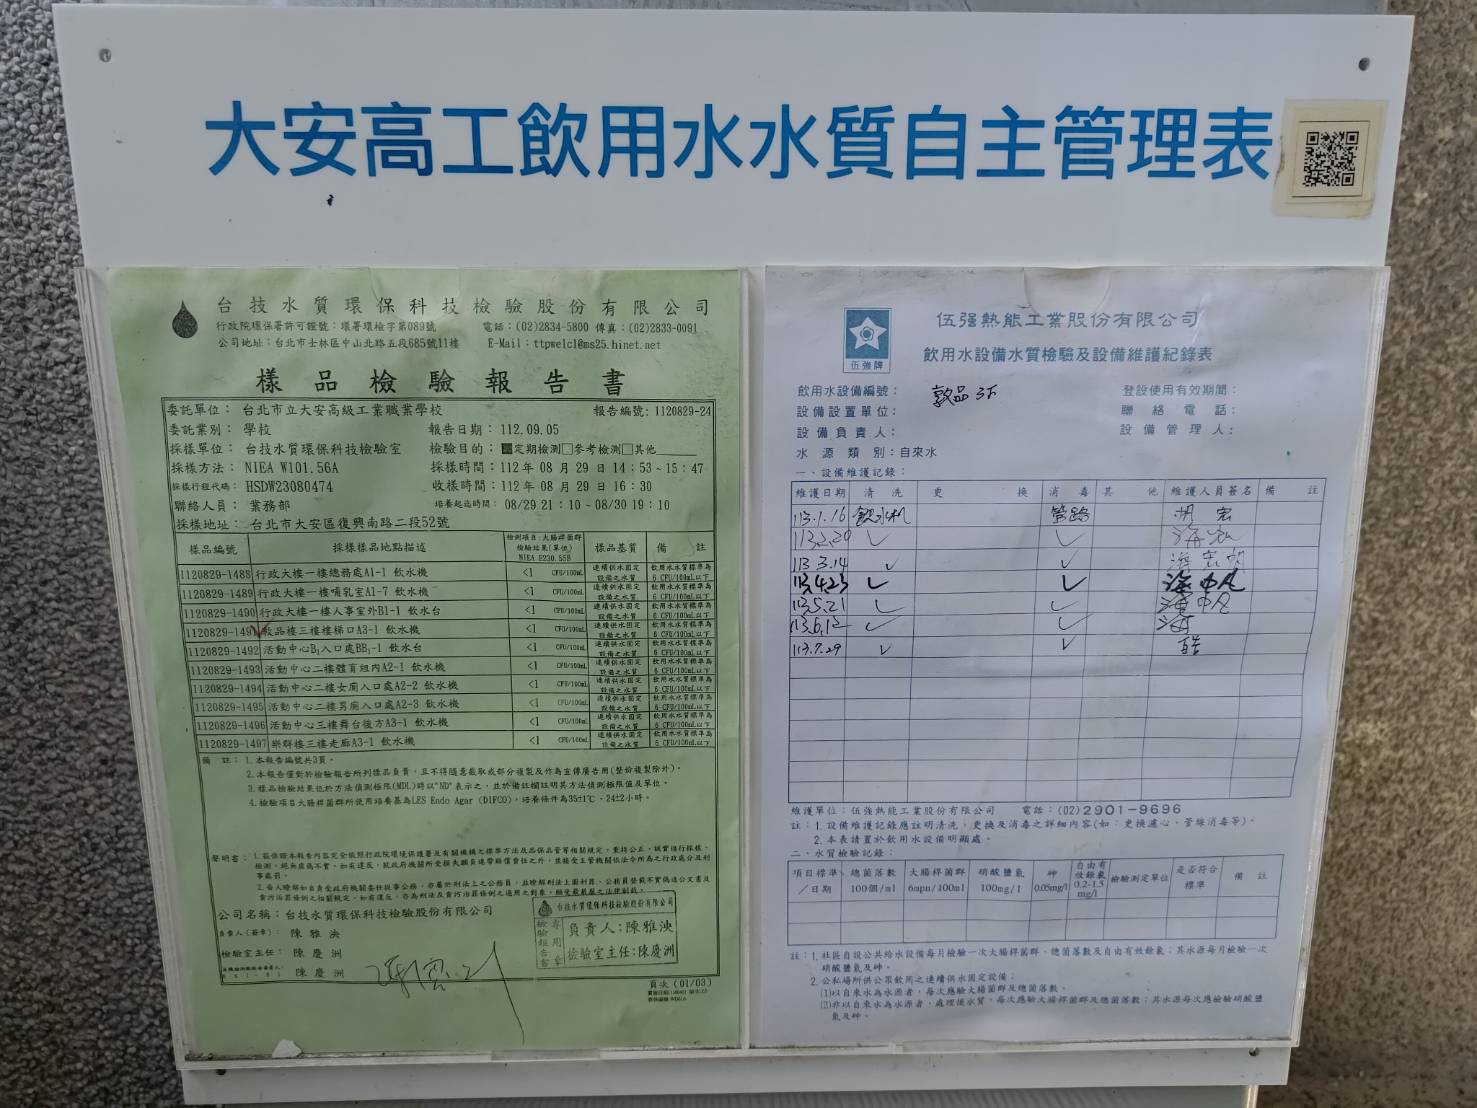 大安高工飲用水水質自主管理表
台技水質環保科技檢驗股份有限公司
行政院環保署許可證號：環署環檢字第089號 電話：(02)2834-5800 傳真：(02)2833-0091
公司地址：台北市士林區中山北路五段685號11樓 E-Mail：ttpwelcl@ms25.hinet.net
樣品檢驗報告書
委託單位：台北市立大安高級工業職業學校 報告編號：1120829-24
委託業別：學校 報告日期：112.09.05
採樣單位：台技水質環保科技檢驗室 檢驗目的：■定期檢測□參考檢測□其他
採樣方法：NIEA W101.56A 採樣時間：112年08月29日14：53~15：47
採樣行程代碼：HSDW23080474 收樣時間：112年08月29日16：30
聯絡人員：業務部 培養起迄時間：08/29 21：10~08/30 19：10
採樣地址：台北市大安區復興南路二段52號
樣品編號 採樣樣品地點描述 檢測項目：大腸桿菌群 檢驗結果(單位) NIEA E230.55B 樣品基質 備註
1120829-1488 行政大樓一樓總務處A1-1 飲水機 <1 CFU/100mL 連續供水固定設備之水質 飲用水水質標準為6 CFU/100mL以下
1120829-1489 行政大樓一樓哺乳室A1-7 飲水機 <1 CFU/100mL 連續供水固定設備之水質 飲用水水質標準為6 CFU/100mL以下
1120829-1490 行政大樓一樓人事室外B1-1 飲水台 <1 CFU/100mL 連續供水固定設備之水質 飲用水水質標準為6 CFU/100mL以下
1120829-1491 敦品樓三樓樓梯口A3-1 飲水機 <1 CFU/100mL 連續供水固定設備之水質 飲用水水質標準為6 CFU/100mL以下
1120829-1492 活動中心B1入口處BB1-1 飲水台 <1 CFU/100mL 連續供水固定設備之水質 飲用水水質標準為6 CFU/100mL以下
1120829-1493 活動中心二樓體育組內A2-1 飲水機 <1 CFU/100mL 連續供水固定設備之水質 飲用水水質標準為6 CFU/100mL以下
1120829-1494 活動中心二樓女廁入口處A2-2 飲水機 <1 CFU/100mL 連續供水固定設備之水質 飲用水水質標準為6 CFU/100mL以下
1120829-1495 活動中心二樓男廁入口處A2-3 飲水機 <1 CFU/100mL 連續供水固定設備之水質 飲用水水質標準為6 CFU/100mL以下
1120829-1496 活動中心三樓舞台後方A3-1 飲水機 <1 CFU/100mL 連續供水固定設備之水質 飲用水水質標準為6 CFU/100mL以下
1120829-1497 樂群樓三樓走廊A3-1 飲水機 <1 CFU/100mL 連續供水固定設備之水質 飲用水水質標準為6 CFU/100mL以下
備註：1.本報告編號共3頁。
2.本報告僅對於檢驗報告所列樣品負責，且不得隨意截取或部分複製及作為宣傳廣告用(整份複製除外)。
3.樣品檢驗結果低於方法偵測極限(MDL)時以"ND"表示之，並於備註欄註明其方法偵測極限值及單位。
4.檢驗項目大腸桿菌群所使用培養基為LES Endo Agar (DIFCO)，培養條件為35±1℃，24±2小時。
聲明書：1.茲保證本報告內容完全依照行政院環境保護署及有關機構之標準方法及品保品管等相關規定，秉持公正、誠實進行採樣、
檢測，絕無虛偽不實。如有違反，就政府機關所受損失願負連帶賠償責任之外，並接受主管機關依法令所為之行政處分及刑
事處罰。
2.吾人瞭解如自身受政府機關委任從事公務，亦屬於刑法上之公務員，並瞭解刑法上圖利罪、公務員登載不實偽造公文書及
貪污治罪條例之相關規定，如有違反，亦為刑法及貪污治罪條例之適用之對象，願受最嚴厲之法律制裁。
公司名稱：台技水質環保科技檢驗股份有限公司
負責人(簽章)：陳雅泱
檢驗室主任：陳慶洲
陳慶洲
台技水質環保科技檢驗股份有限公司
檢驗報告書 專用章
負責人:陳雅泱
檢驗室主任:陳慶洲
頁次 (01/03)
伍強牌
伍强熱能工業股份有限公司
飲用水設備水質檢驗及設備維護紀錄表
飲用水設備編號：敦品3F 登設使用有效期間：
設備設置單位： 聯絡電話：
設備負責人： 設備管理人：
水源類別：自來水
一、設備維護記錄：
維護日期 清洗 更換 消毒 其他 維護人員簽名 備註
113.1.16 飲水机 管路
113.2.20 ✓ ✓
113.3.14 ✓ ✓
113.4.23 ✓ ✓
113.5.21 ✓ ✓
113.6.12 ✓ ✓
113.7.29 ✓ ✓
維護單位：伍強熱能工業股份有限公司 電話：(02)2901-9696
註：1.設備維護記錄應註明清洗、更換及消毒之詳細內容(如：更換濾心、管線消毒等)。
2.本表請置於飲用水設備明顯處。
二、水質檢驗記錄：
項目標準/日期 總菌落數100個/ml 大腸桿菌群6mpn/100ml 硝酸鹽氮100mg/l 砷0.05mg/l 自由有效餘氯0.2-1.5mg/l 檢驗測定單位 是否符合標準 備註
註：1.社區自設公共給水設備每月檢驗一次大腸桿菌群、總菌落數及自由有效餘氯；其水源每月檢驗一次
硝酸鹽氮及砷。
2.公私場所供公眾飲用之連續供水固定設備：
(1)以自來水為水源者，每次應驗大腸菌群及總菌落數。
(2)非以自來水為水源者，處理後水質，每次應驗大腸桿菌群及總菌落數；其水源每次應檢驗硝酸鹽
氮及砷。